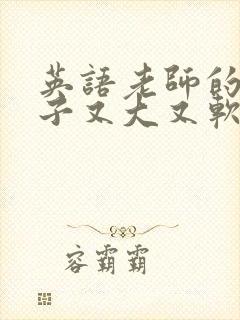 英語老師的
子又大又軟
容霸霸